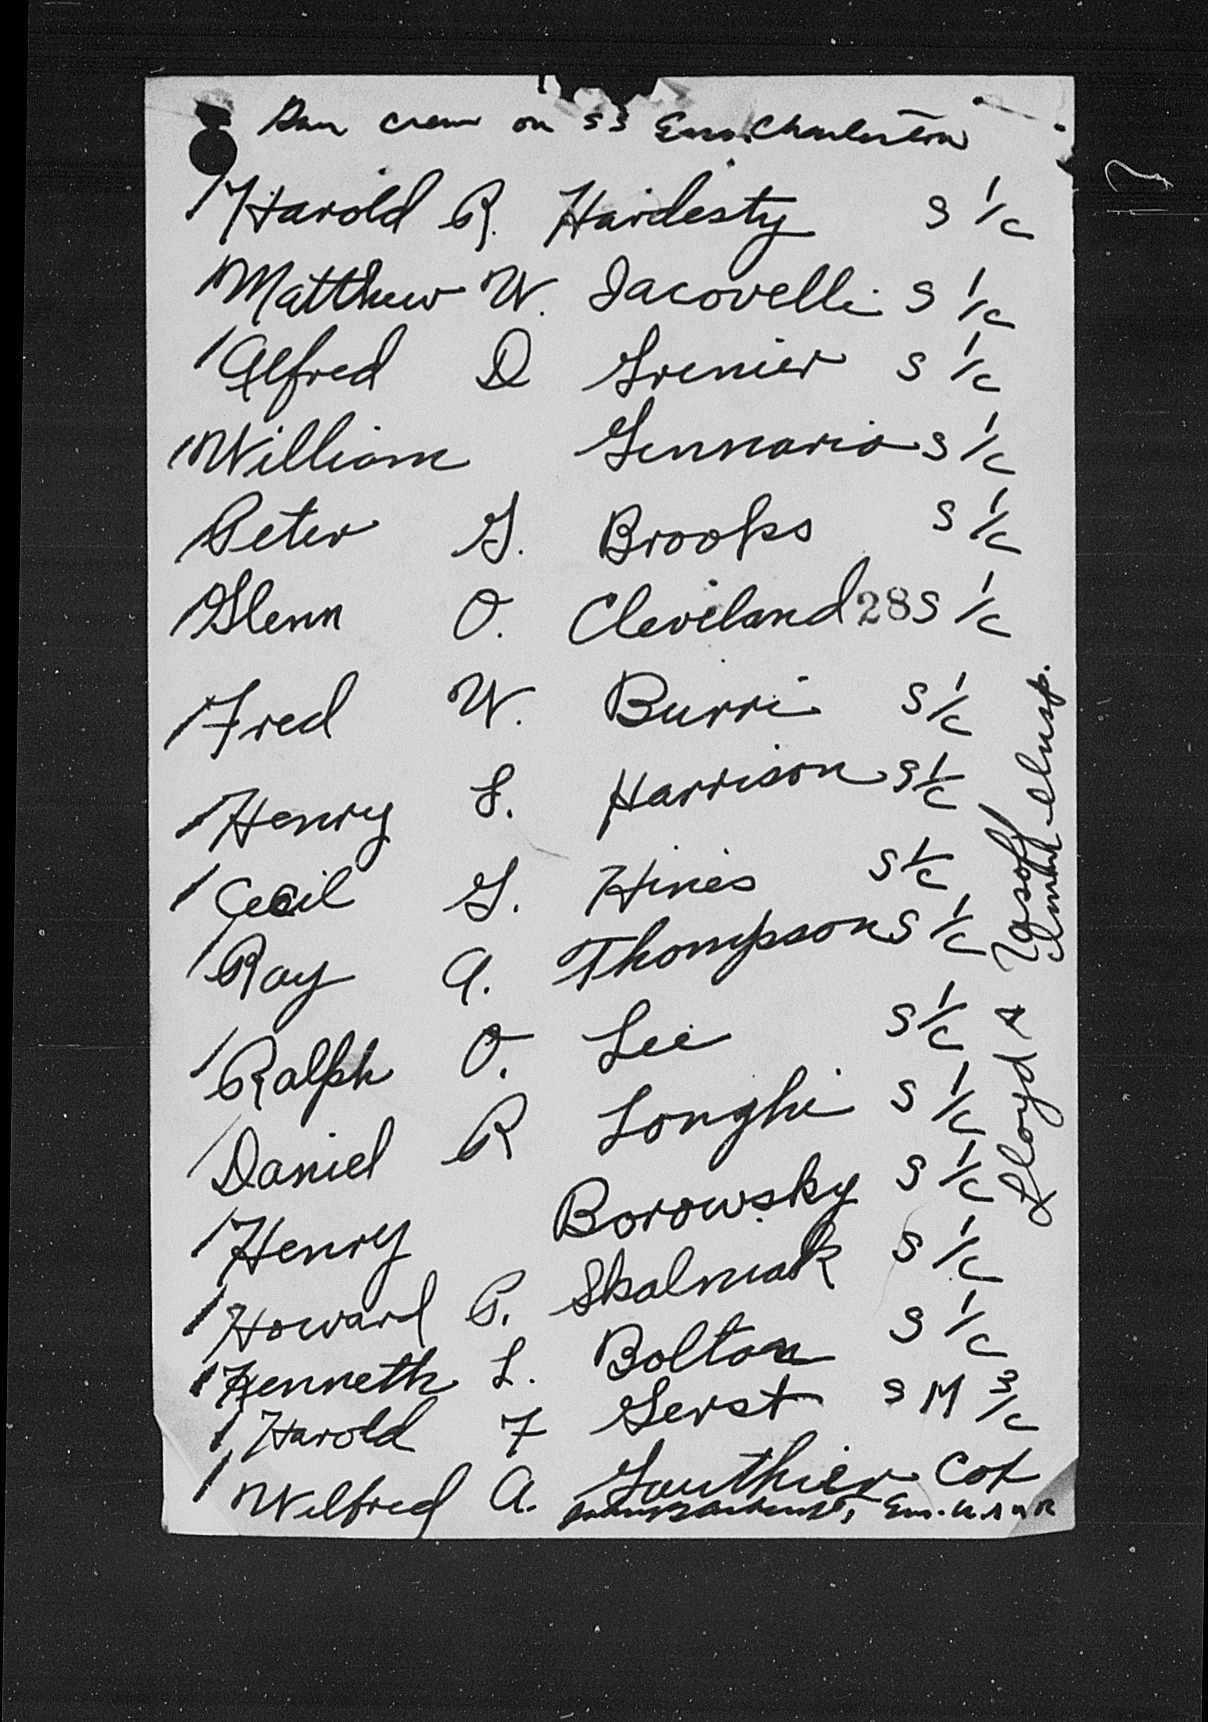 Gun crew on SS Charleston
Harold R. Hardesty S 1/c
Matthew W. Iacovelli S 1/c
Alfred D Grenier S 1/c
William Gennario S 1/c
Peter G. Brooks S 1/c
Glenn O. Cleveland 28 S 1/c
Fred W. Burri S 1/c
Henry S. Harrison S 1/c
Cecil G. Hines S 1/c
Ray A. Thompson S 1/c
Ralph O. Lee S 1/c
Daniel R Longhi S 1/c
Henry Borowsky S 1/c
Howard P. Skalniak S 1/c
Kenneth L. Bolton S 1/c
Harold F Gerst S M 3/c
Wilfred A. Gauthier Cox
Ens. U.S.N.R
Lloyd A
Insp.